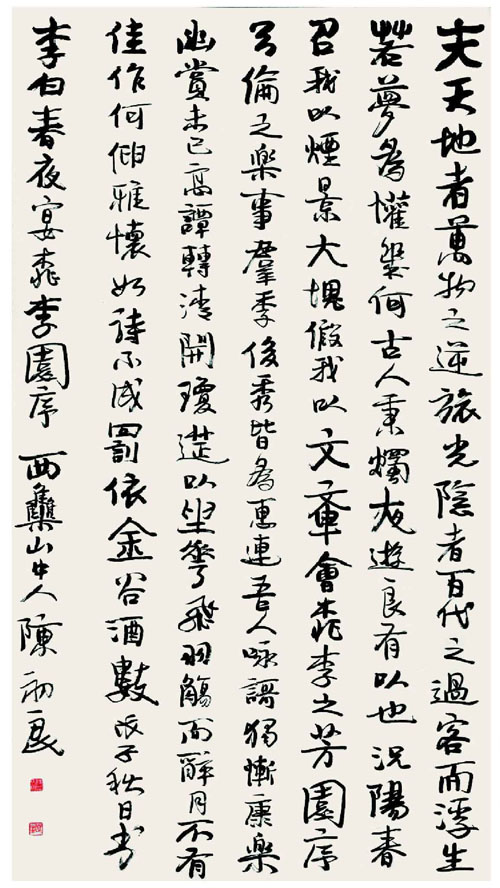 夫天地者萬物之逆旅光陰者百代之過客而浮生
若夢為懽幾何古人秉燭夜遊良有以也況陽春
召我以煙景大塊假我以文章會桃李之芳園序
天倫之樂事羣季俊秀皆為惠連吾人詠謌獨慚康樂
幽賞未已高譚轉清開瓊筵以坐華飛羽觴而醉月不有
佳作何伸雅懷如詩不成罰依金谷酒數戊子秋日書
李白春夜宴桃李園序西樵山中人陳初良